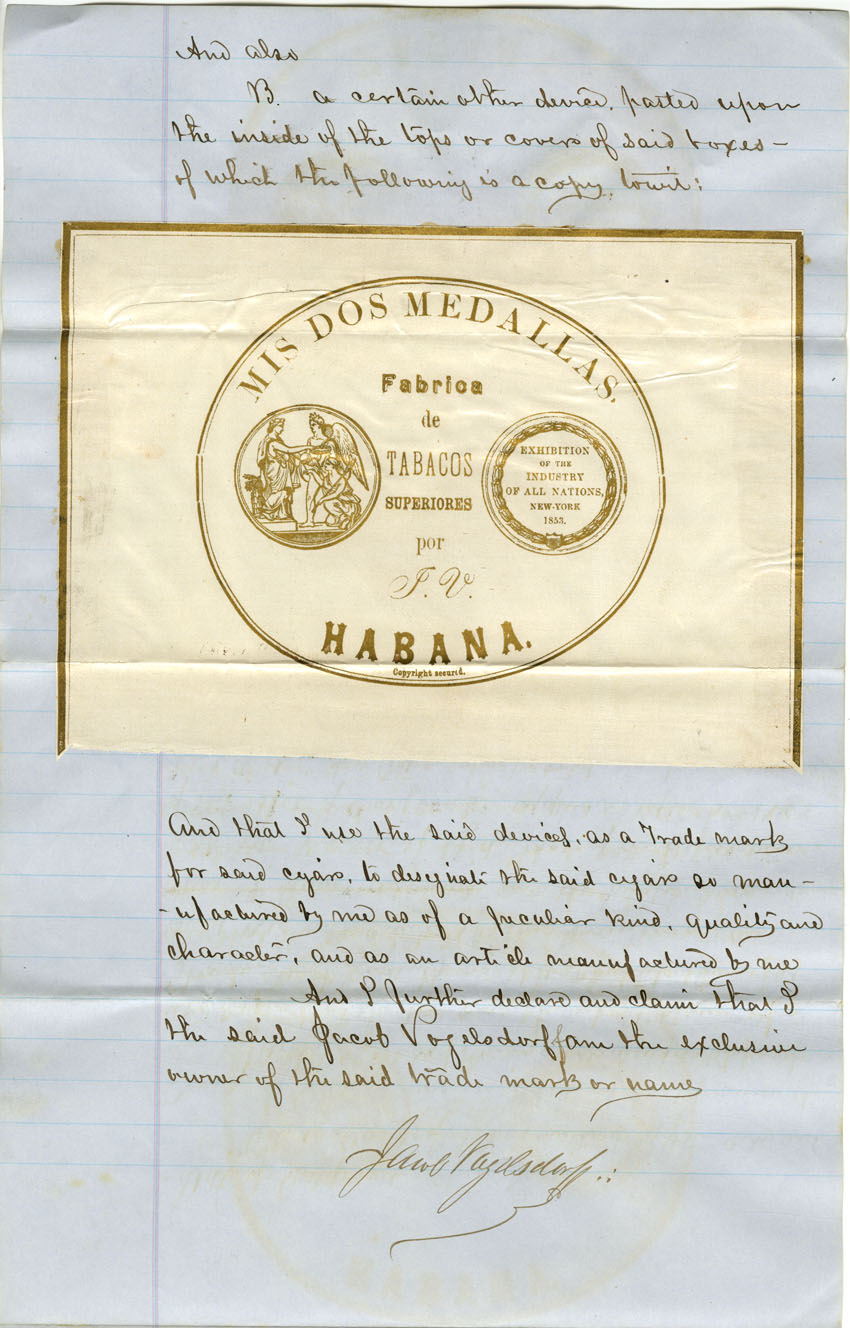 And also
B. a certain other device, pasted upon
the inside of the tops or covers of said boxes –
of which the following is a copy, towit:
MIS DOS MEDALLAS.
Fabrica
de
TABACOS
SUPERIORES
por
J. V.
EXHIBITION
OF THE
INDUSTRY
OF ALL NATIONS,
NEW-YORK
1853.
HABANA.
Copyright secured.
And that I use the said devices, as a Trade mark
for said cigars, to designate the said cigars so man–
–ufactured by me as of a peculiar kind, quality and
character, and as an article manufactured by me
And I further declare and claim that I
the said Jacob Vogelsdorff am the exclusive
owner of the said trade mark or name
Jacob Vogelsdorff
HABANA